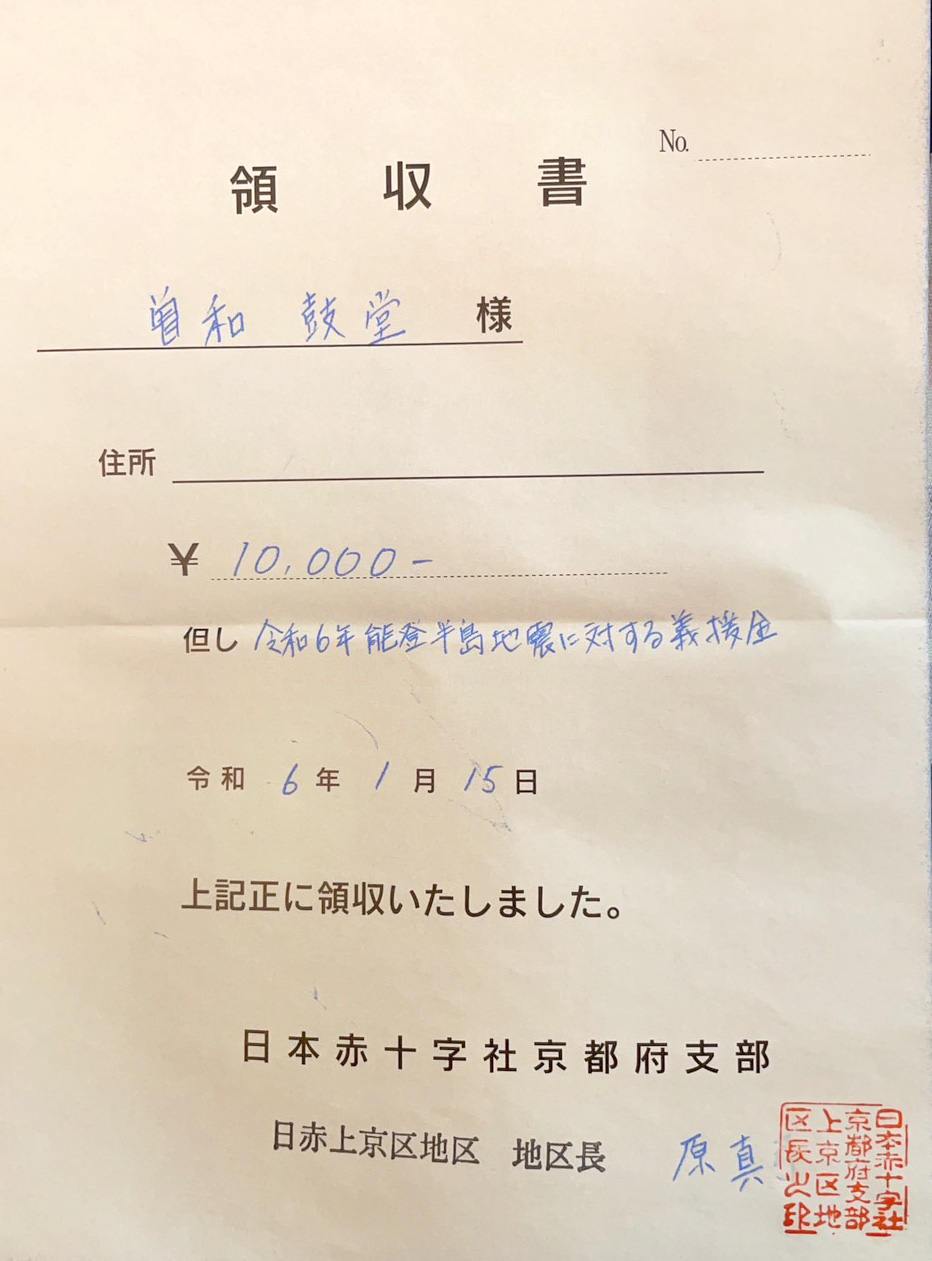 No.
領収書
曽和 鼓堂 様
住所
¥ 10,000-
但し 令和6年能登半島地震に対する義援金
令和 6 年 1 月 15 日
上記正に領収いたしました。
日本赤十字社京都府支部
日赤上京区地区 地区長 原真
日本赤十字社
京都府支部
上京区地
区長之印